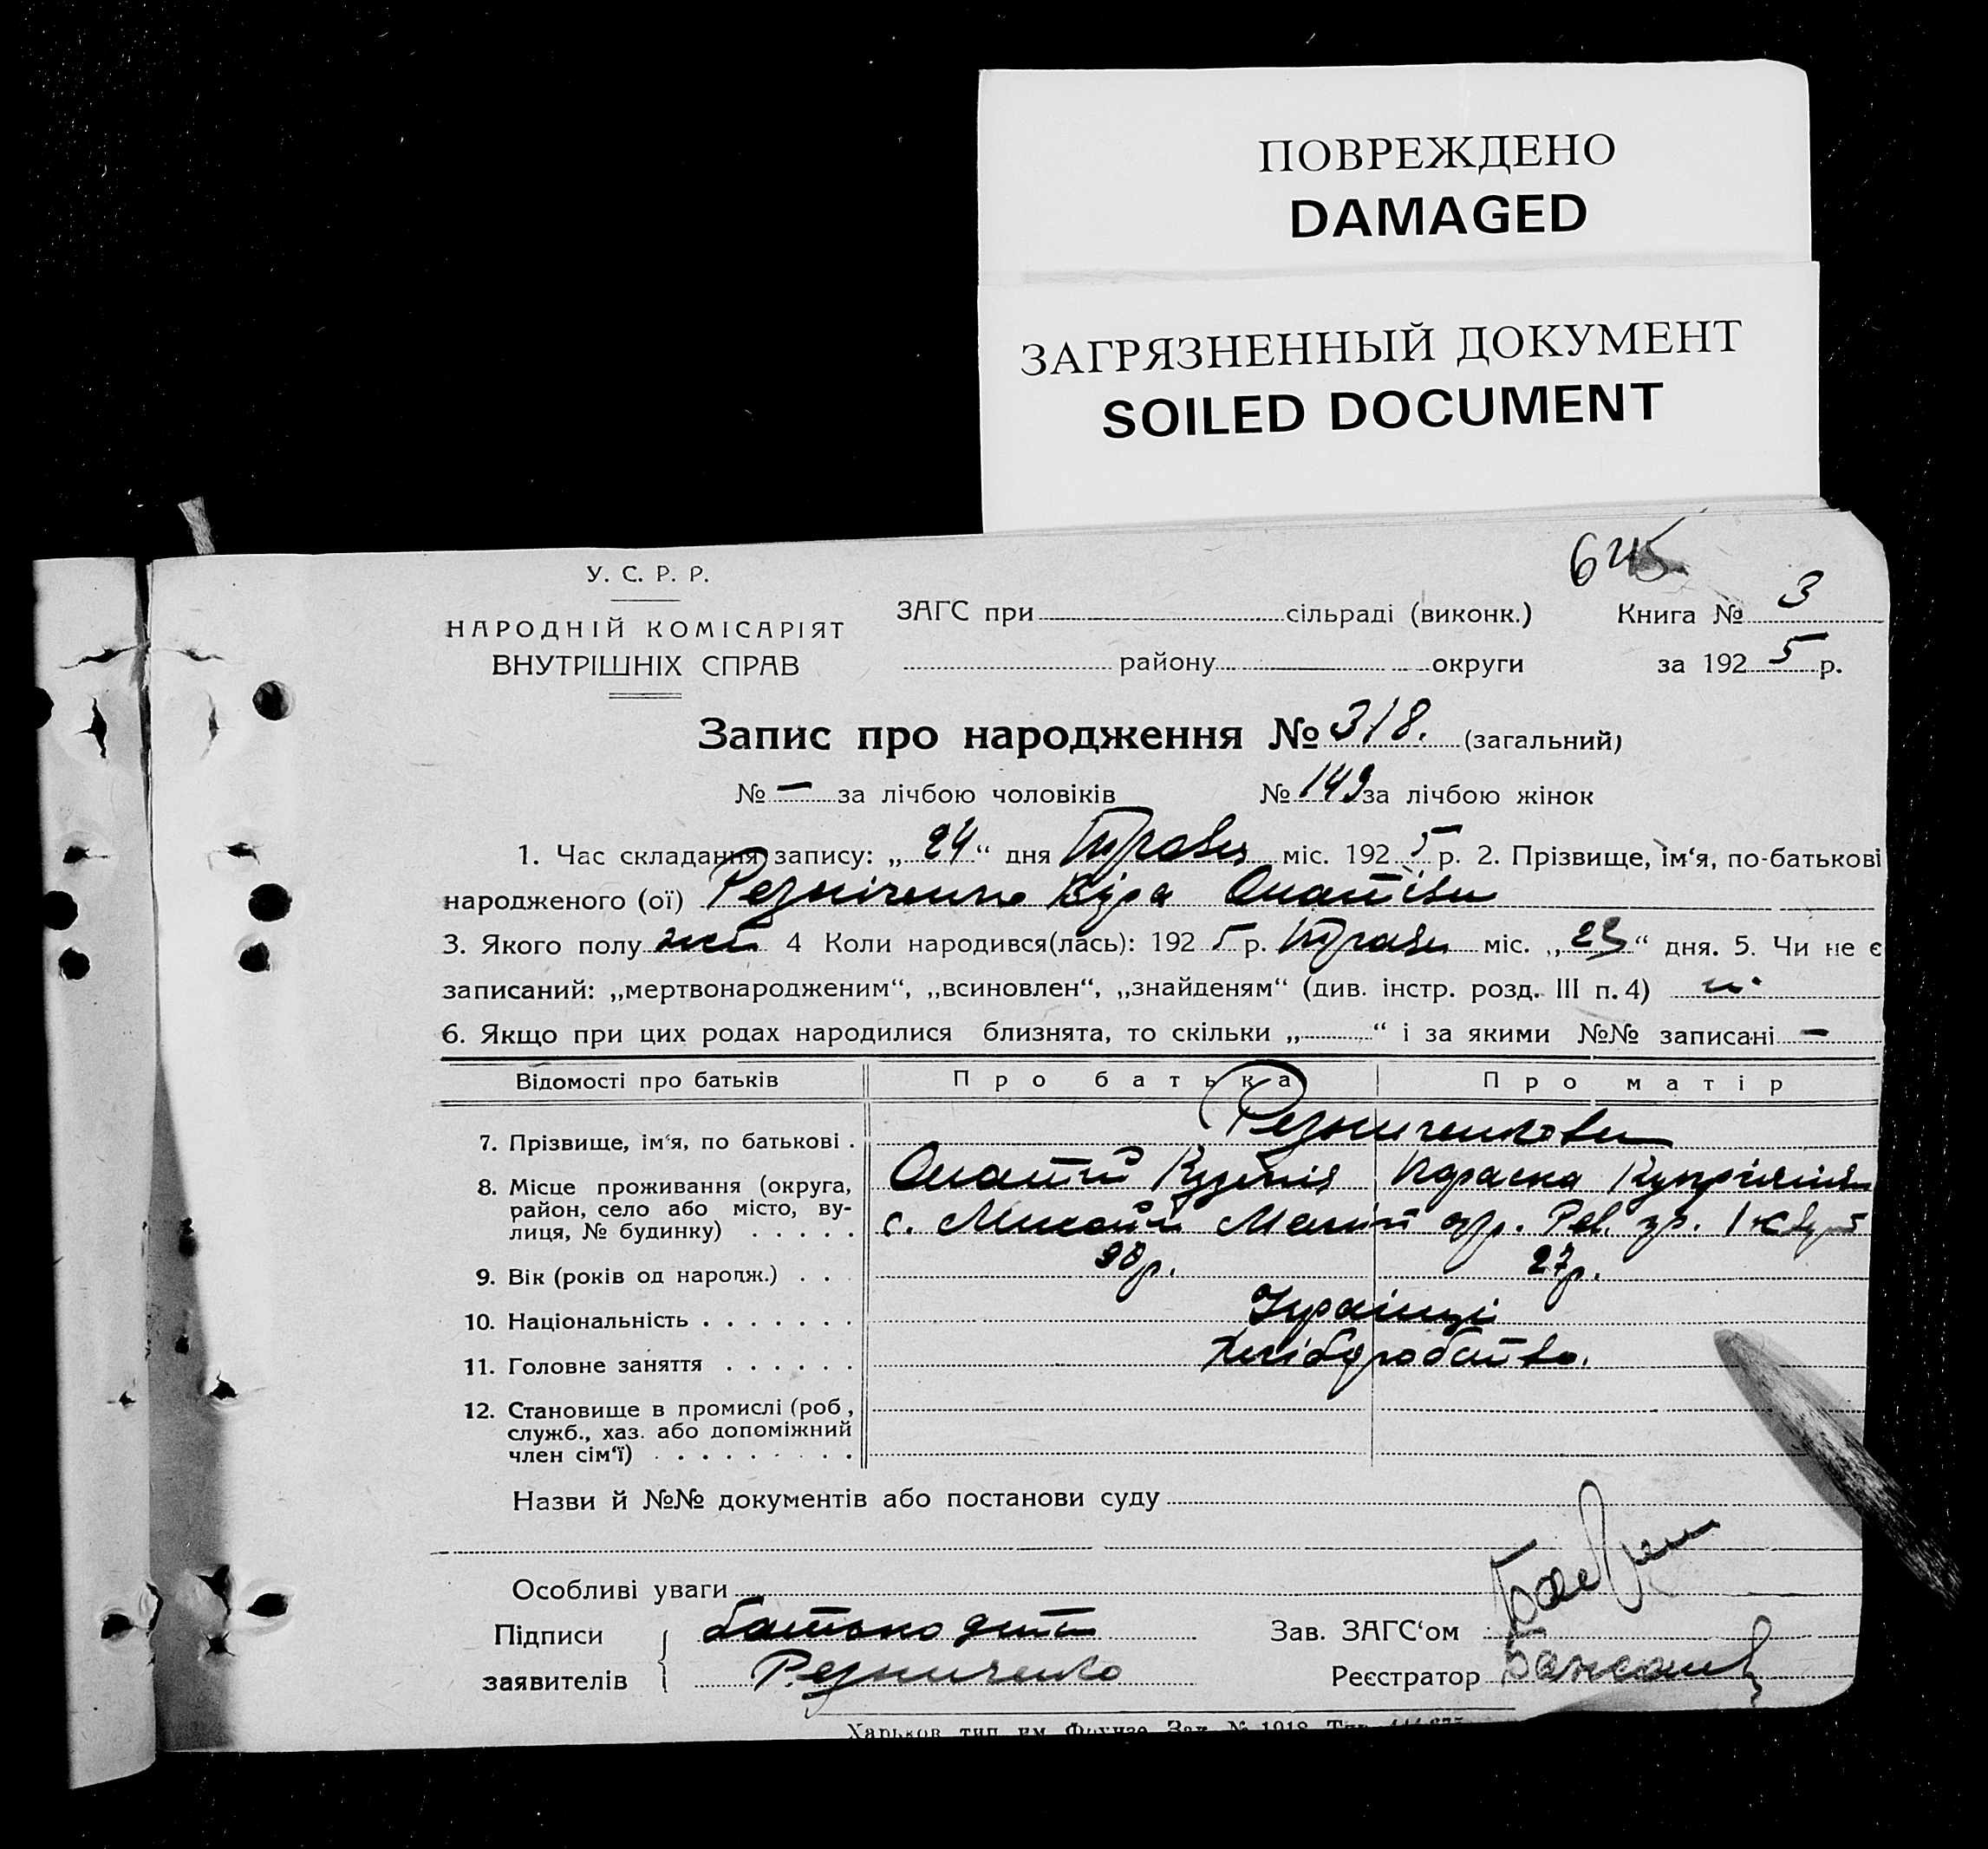 ПОВРЕЖДЕНО
DAMAGED
ЗАГРЯЗНЕННЫЙ ДОКУМЕНТ
SOILED DOCUMENT
У. С. Р. Р.
НАРОДНІЙ КОМІСАРІЯТ
ВНУТРІШНІХ СПРАВ
ЗАГС при сільраді (виконк.) Книга № 3
району округи за 1925 р.
Запис про народження № 318. (загальний)
№ — за лічбою чоловіків № 149 за лічбою жінок
1. Час складання запису: „24“ дня Травня міс. 1925 р. 2. Прізвище, ім‘я, по-батькові
народженого (ої) Резніченко Віра
3. Якого полу жін 4 Коли народився(лась): 1925 р. Травня міс. „23“ дня. 5. Чи не є
записаний: „мертвонародженим“, „всиновлен“, „знайденям“ (див. інстр. розд. III п. 4) ні
6. Якщо при цих родах народилися близнята, то скільки „ “ і за якими №№ записані —
Відомості про батьків Про батька Про матір
7. Прізвище, ім‘я, по батькові .
8. Місце проживання (округа,
район, село або місто, ву-
лиця, № будинку) . . . . . с.
9. Вік (років од народж.) . . 30р. 27р.
10. Національність . . . . . . . Українці
11. Головне заняття . . . . . . Хліборобство.
12. Становище в промислі (роб,
служб., хаз. або допоміжний
член сім‘ї) . . . . . . . . .
Назви й №№ документів або постанови суду
Особливі уваги
Підписи батько дити Зав. ЗАГС‘ом
заявителів Резниченко Реєстратор
Харьков тип. им. Фрунзе Зак. № 1918